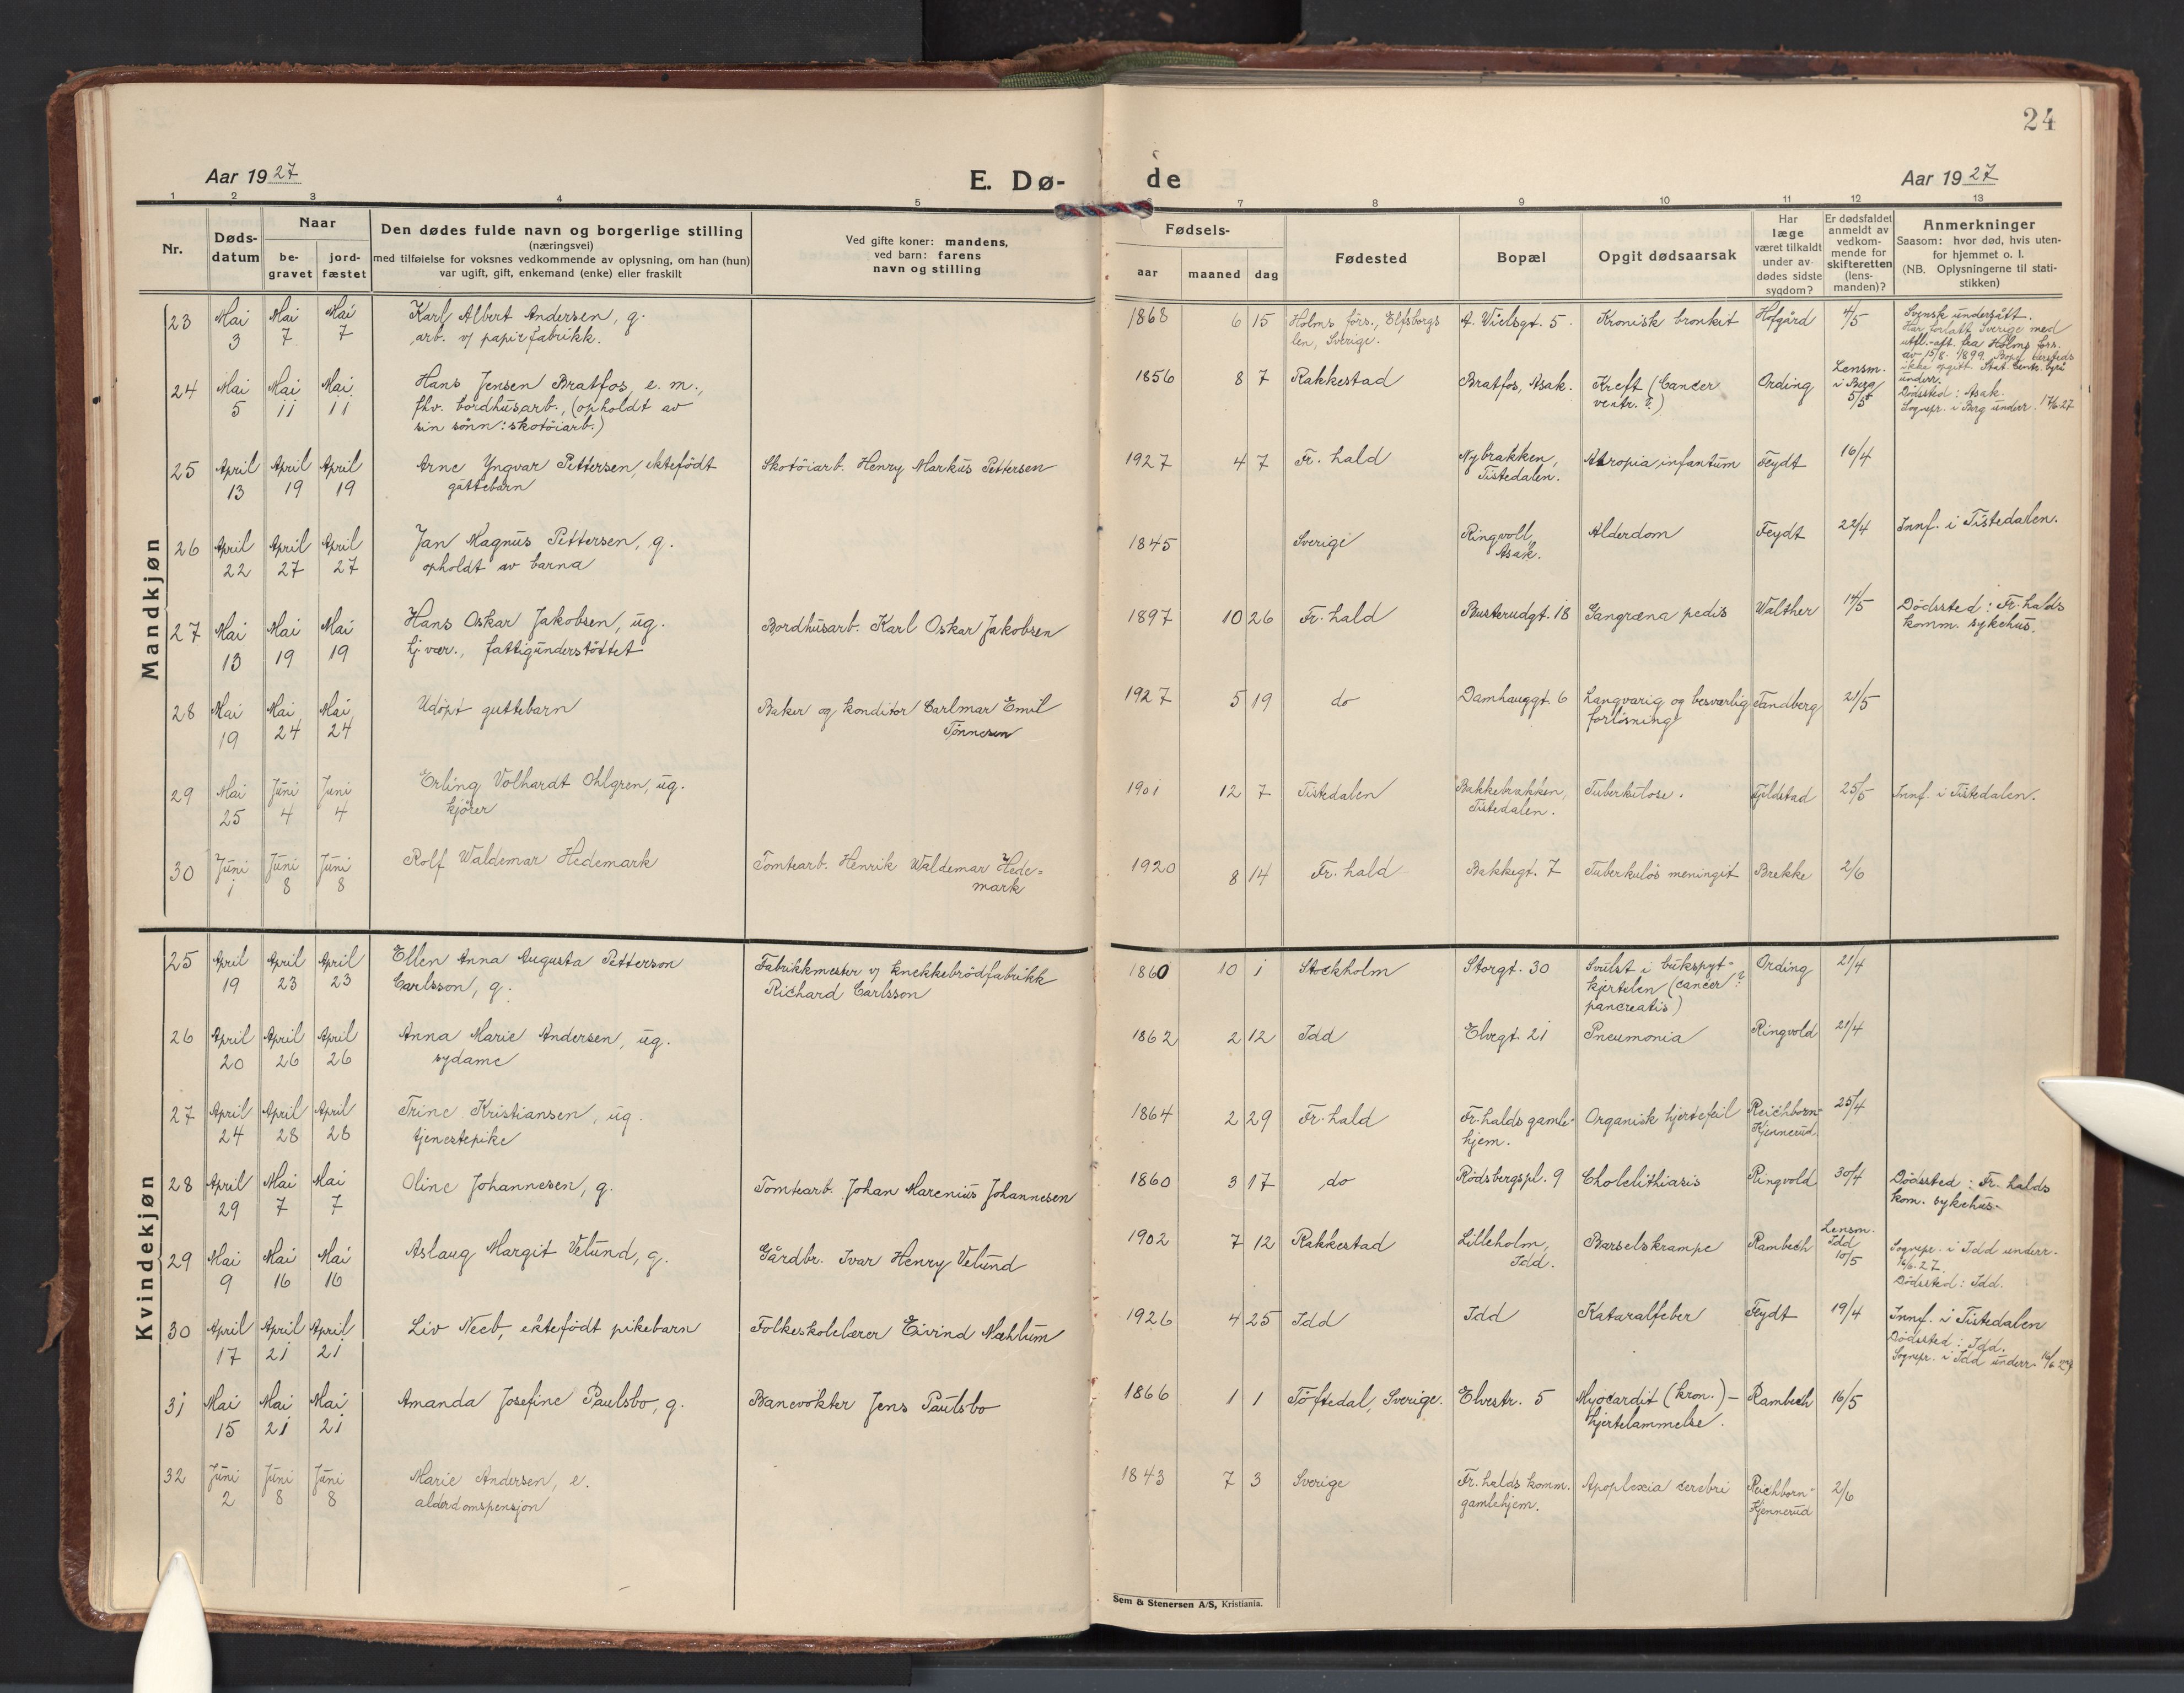 24
Aar 1927
E. Dø-
de
Aar 1927
1 2 3 4 5 6 7 8 9 10 11 12 13
Nr.
Døds-
datum
Naar
be-
gravet
jord-
fæstet
Den dødes fulde navn og borgerlige stilling
(næringsvei)
med tilføielse for voksnes vedkommende av oplysning, om han (hun)
var ugift, gift, enkemand (enke) eller fraskilt
Ved gifte koner: mandens,
ved barn: farens
navn og stilling
Fødsels-
aar maaned dag
Fødested
Bopæl
Opgit dødsaarsak
Har
læge
været tilkaldt
under av-
dødes sidste
sygdom?
Er dødsfaldet
anmeldt av
vedkom-
mende for
skifteretten
(lens-
manden)?
Anmerkninger
Saasom: hvor død, hvis uten-
for hjemmet o. l.
(NB. Oplysningerne til stati-
stikken)
Mandkjøn
23 Mai Mai Mai Karl Albert Andersen, g. 1868 6 15 Holms förs., Elfsborgs A. Vielsgt. 5. Kronisk bronkit Hofgård 4/5 Svensk undersått.
3 7 7 arb. v/ papirfabrikk. len, Sverige. Har forlatt Sverige med
utfl.-att. fra Holms förs.
av 15/8. 1899.
24 Mai Mai Mai Hans Jensen Bratfos, e. m., 1856 8 7 Rakkestad Bratfos, Asak. Kreft (Cancer Ording Lensm. ikke opgitt. Stat. Centr. byrå
5 11 11 fhv. bordhusarb., (opholdt av ventr.?) i Berg underr.
sin sønn: skotöiarb.) 5/5 Dödssted: Asak.
Sognepr. i Berg underr. 17/6 27
25 April April April Arne Yngvar Pettersen, ektefödt Skotöiarb. Henry Markus Pettersen 1927 4 7 Fr. hald Nybrakken, Atropia infantum Feydt 16/4
13 19 19 guttebarn Tistedalen.
26 April April April Jan Magnus Pettersen, g. 1845 Sverige Ringvoll, Alderdom Feydt 22/4 Innf. i Tistedalen.
22 27 27 opholdt av barna Asak.
27 Mai Mai Mai Hans Oskar Jakobsen, ug. Bordhusarb. Karl Oskar Jakobsen 1897 10 26 Fr. hald Busterudgt. 18 Gangræna pedis Walther 14/5 Dödssted: Fr. halds
13 19 19 tj. vær., fattigunderstöttet komm. sykehus.
28 Mai Mai Mai Udöpt guttebarn Baker og konditor Carlmar Emil 1927 5 19 do Damhauggt. 6 Langvarig og besværlig Tandberg 21/5
19 24 24 Tönnesen forlösning
29 Mai Juni Juni Erling Volhardt Ohlgren, ug. 1901 12 7 Tistedalen Bakkebrakken, Tuberkulose. Fjeldstad 25/5 Innf. i Tistedalen.
25 4 4 kjörer Tistedalen.
30 Juni Juni Juni Rolf Waldemar Hedemark Tomtearb. Henrik Waldemar Hede= 1920 8 14 Fr. hald Bakkegt. 7 Tuberkulös meningit Brekke 2/6
1 8 8 mark
Kvindekjøn
25 April April April Ellen Anna Augusta Petterson Fabrikkmester v/ knekkebrödfabrikk 1860 10 1 Stockholm Storgt. 30 Svulst i bukspyt- Ording 21/4
19 23 23 Carlsson, g. Richard Carlsson kjertelen (cancer ?
pancreatis)
26 April April April Anna Marie Andersen, ug. 1862 2 12 Idd Elvegt. 21 Pneumonia Ringvold 21/4
20 26 26 sydame
27 April April April Trine Kristiansen, ug. 1864 2 29 Fr. hald Fr. halds gamle- Organisk hjertefeil Reichborn- 25/4
24 28 28 tjenestepike hjem. Kjennerud
28 April Mai Mai Oline Johannesen, g. Tomtearb. Johan Marenius Johannesen 1860 3 17 do Rödsbergspl. 9 Cholelithiasis Ringvold 30/4 Dödssted: Fr. halds
29 7 7 kom. sykehus.
29 Mai Mai Mai Aslaug Margit Velund, g. Gårdbr. Ivar Henry Velund 1902 7 12 Rakkestad Lilleholm, Barselskrampe Rambech Lensm. Sognepr. i Idd underr.
9 16 16 Idd. Idd 16/6. 27.
10/5 Dödssted: Idd.
30 April April April Liv Neeb, ektefödt pikebarn Folkeskolelærer Eivind Næhlum 1926 4 25 Idd Idd Kataralfeber Feydt 19/4 Innf. i Tistedalen
17 21 21 Dödssted: Idd.
Sognepr. i Idd underr. 16/6 27
31 Mai Mai Mai Amanda Josefine Paulsbo, g. Banevokter Jens Paulsbo 1866 1 1 Töftedal, Sverige. Elvestr. 5 Myocardit (kron.) – Rambech 16/5
15 21 21 hjertelammelse.
32 Juni Juni Juni Marie Andersen, e. 1843 7 3 Sverige Fr. halds komm. Apoplexia cerebri Reichborn- 2/6
2 8 8 alderdomspensjon gamlehjem. Kjennerud
Sem & Stenersen A/S, Kristiania.